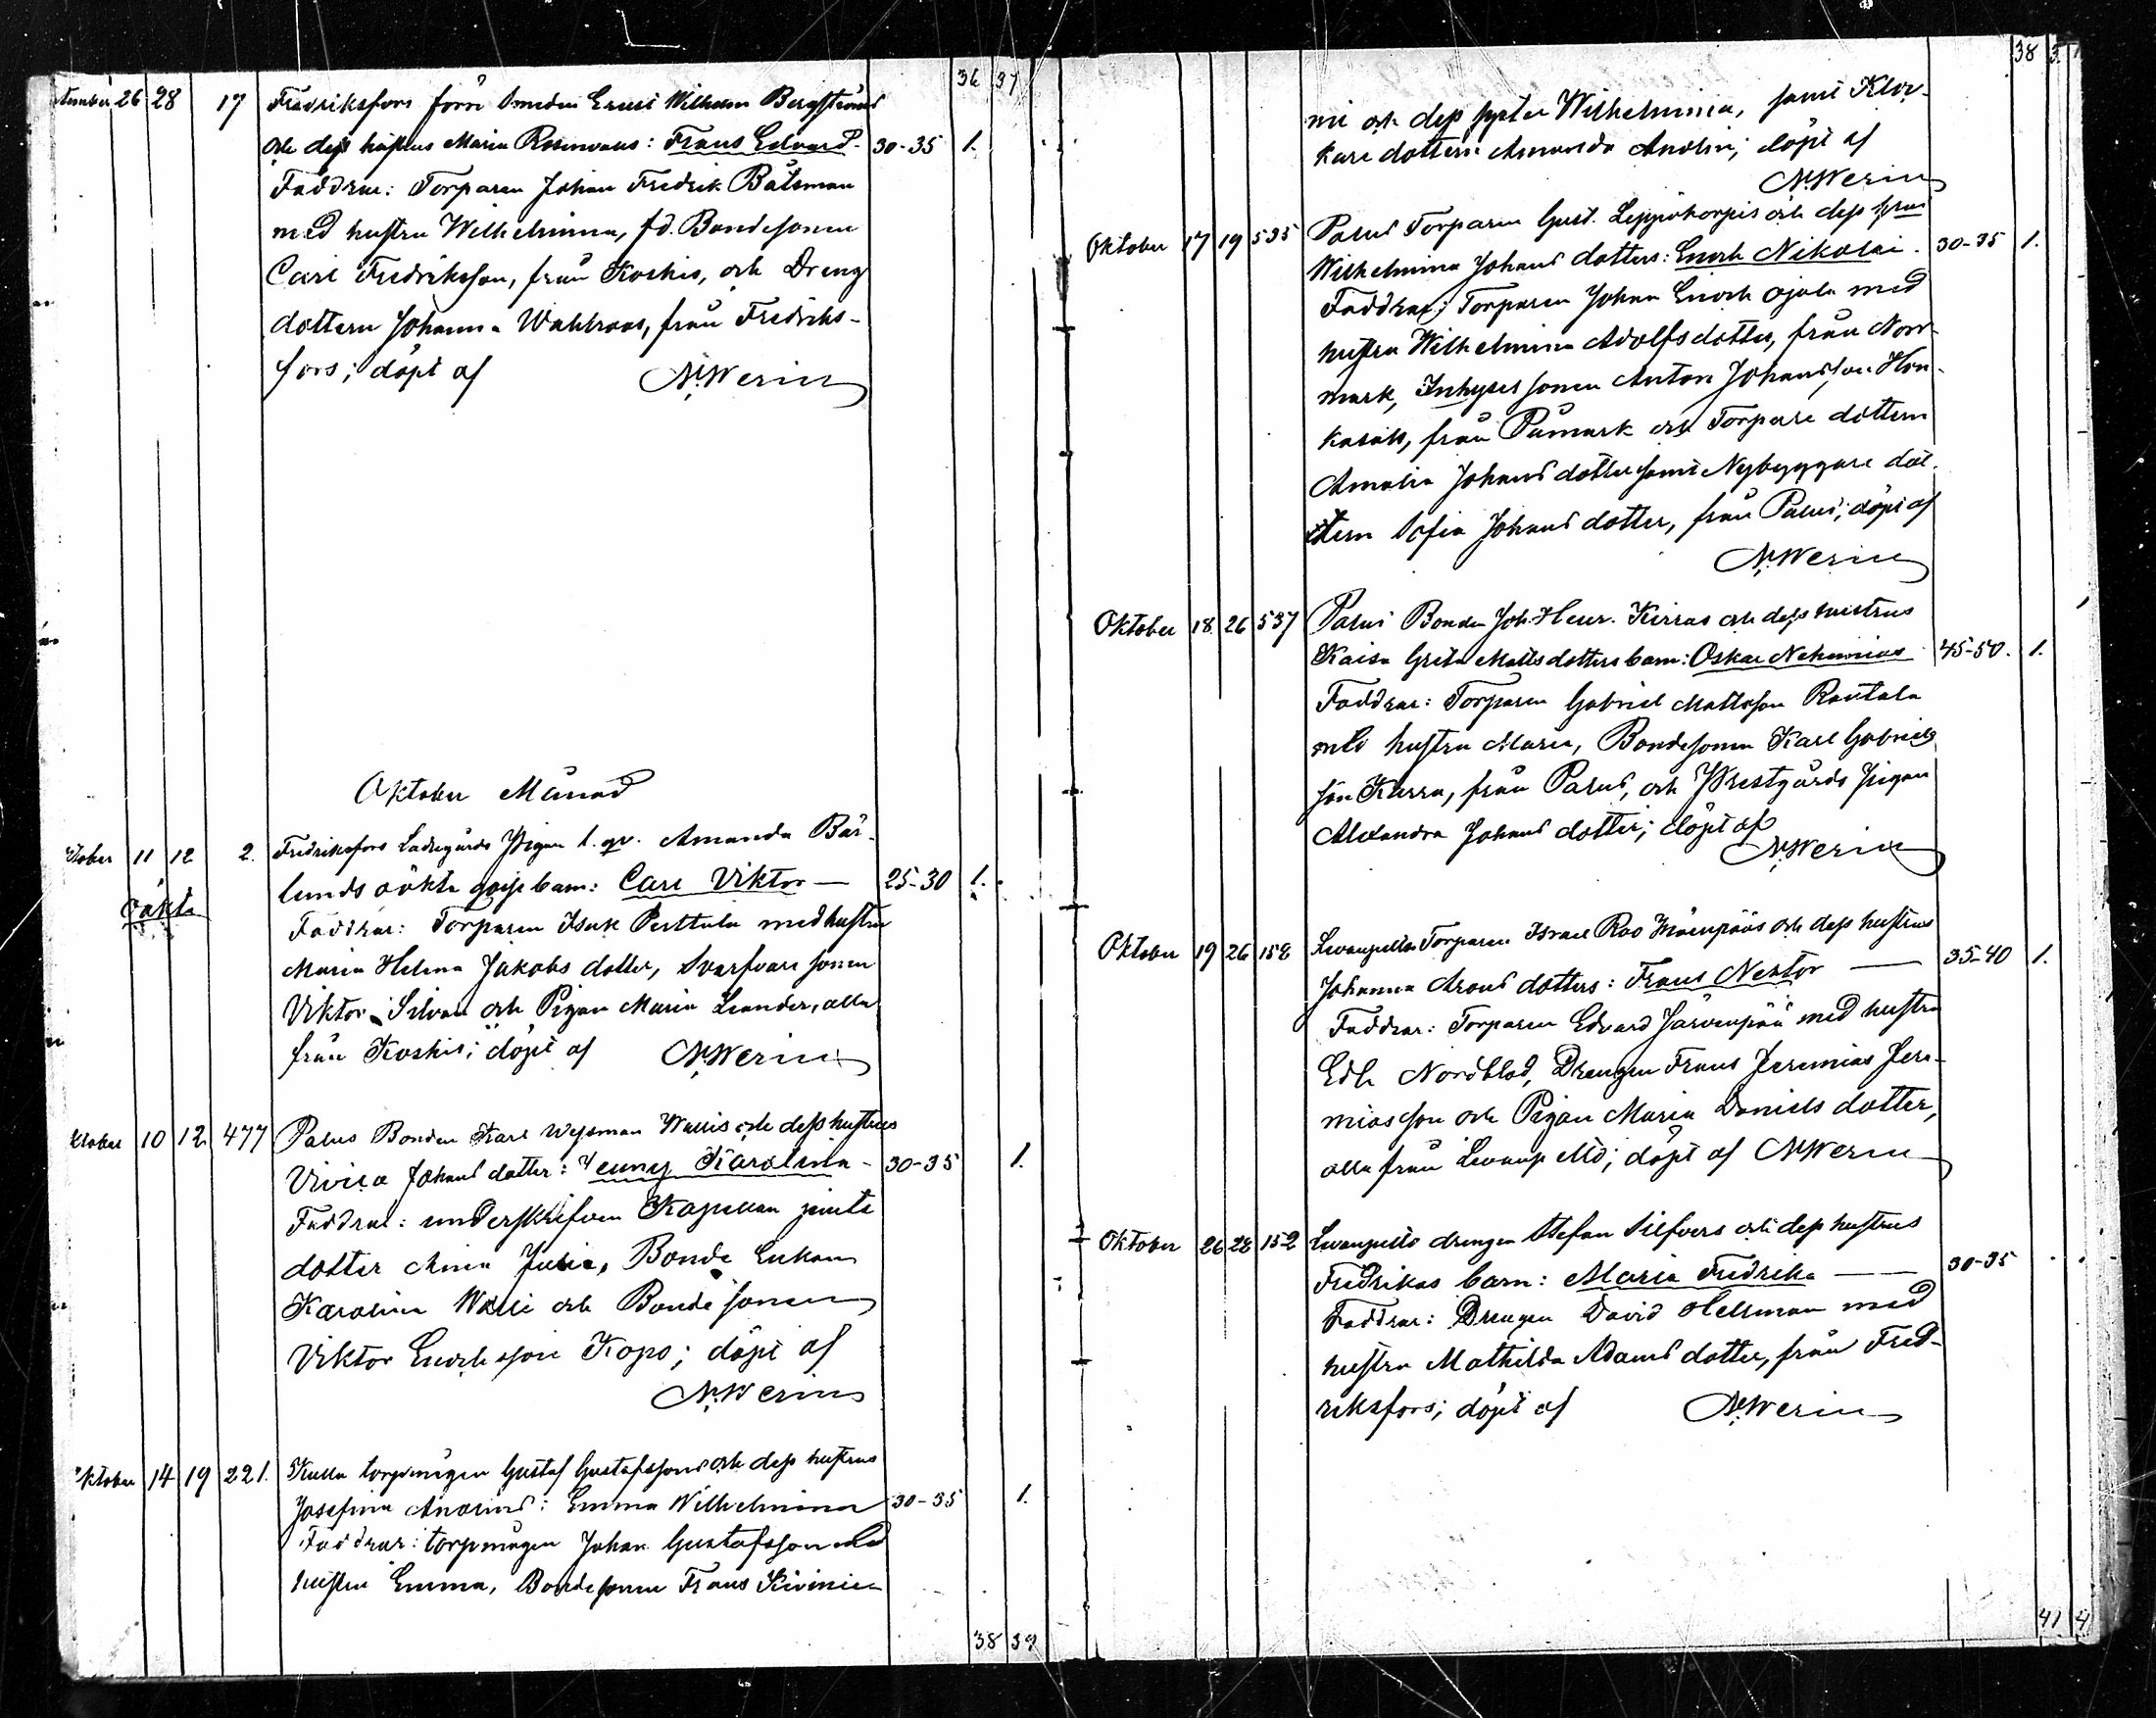 36 37
tember 26 28 17 Fredriksfors förre Smeden Ernst Wilhelm Bergströms
och dess hustrus Maria Rosenvaus: Frans Edvard - 30-35 1.
Faddrar: Torparen Johan Fredrik Båtsman
med hustru Wilhelmina, fd. Bondesonen
Carl Fredriksson, från Koskis, och Dreng
dottern Johanna Wahlroos, från Fredriks-
fors; döpt af N. Werin
Oktober Månad
tober 11 12 2. Fredriksfors Ladugårds Pigan l. qv. Amanda Bär-
lunds oäkta gosse barn: Carl Viktor — 25-30 1.
oäkta
Faddrar: Torparen Isak Perttula med hustru
Maria Helena Jakobs dotter, Svarfvare sonen
Viktor Silvan och Pigan Maria Leander, alla
från Koskis; döpt af N. Werin
ktober 10 12 477 Palus Bonden Karl Wessman Wallis och dess hustrus
Viviea Johans dotter: Jenny Karolina - 30-35 1.
Faddrar: underskrifven Kapellan jemte
dotter Aina Julia, Bonde Enkan
Karolina Walli och Bonde sonen
Viktor Enochsson Kopo; döpt af
N. Werin
ktober 14 19 221. Kulla torpmågen Gustaf Gustafssons och dess hustrus
Josefina Anolins: Emma Wilhelmina 30-35 1.
Faddrar: torpmågen Johan Gustafsson med
hustru Emma, Bondesonen Frans Kivinie-
38 39
38 3
mi och dess syster Wilhelmina, samt Kloc-
kare dottern Amanda Anolin; döpt af
N. Werin
Oktober 17 19 535 Palus Torparen Gust. Leppikorpis och dess hrus
Wilhelmina Johans dotters: Enoch Nikolai. 30-35 1.
Faddrar: Torparen Johan Enoch Ojala med
hustru Wilhelmina Adolfs dotter, från Norr-
mark, Inhyses sonen Anton Johansson Hon-
kasalo, från Påmark och Torpare dottern
Amalia Johans dotter samt Nybyggare dot-
tern Sofia Johans dotter, från Palus; döpt af
N. Werin
Oktober 18 26 537 Palus Bonden Joh. Henr. Kirras och dess hustrus
Kaisa Greta Matts dotters barn: Oskar Nehemias 45-50. 1.
Faddrar: Torparen Gabriel Mattsson Rautala
med hustru Maria, Bondesonen Karl Gabriels
son Kirra, från Palus, och Prestgårds Pigan
Alexandra Johans dotter; döpt af
N. Werin
Oktober 19 26 158 Levanpelto Torparen Israel Roo Krömpääs och dess hustrus
Johanna Arons dotters: Frans Nektor — 35-40 1.
Faddrar: Torparen Edvard Järvenpää med hustru
Edla Nordblad, Drengen Frans Jeremias Jere-
miasson och Pigan Maria Daniels dotter,
alla från Levanpelto; döpt af N. Werin
Oktober 26 28 152 Levanpelto drengen Stefan Silfvers och dess hustrus
Fredrikas barn: Maria Fredrika — 30-35
Faddrar: Drengen David Hellman med
hustru Mathilda Adams dotter, från Fred-
riksfors; döpt af N. Werin
41 4